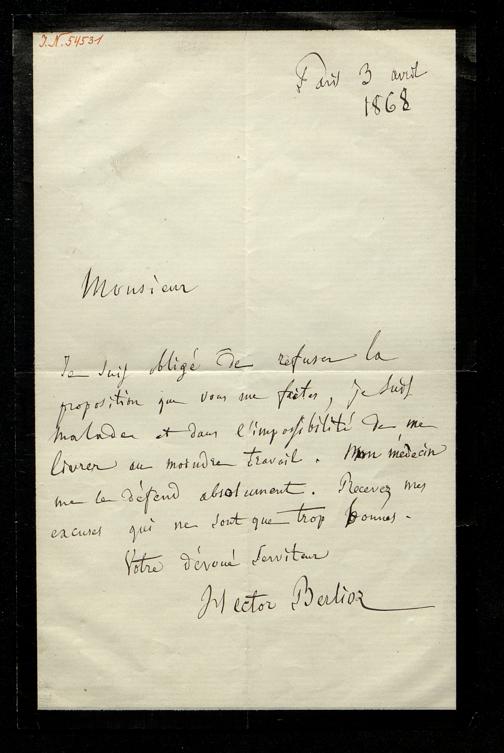 I.N. 54531
Paris 3 avril
1868
Monsieur
Je suis obligé de refuser la
proposition que vous me faites, je suis
malade et dans l'impossibilité de me
livrer au moindre travail. Mon médecin
me le défend absolument. Recevez mes
excuses qui ne sont que trop bonnes.
Votre dévoué serviteur
Hector Berlioz